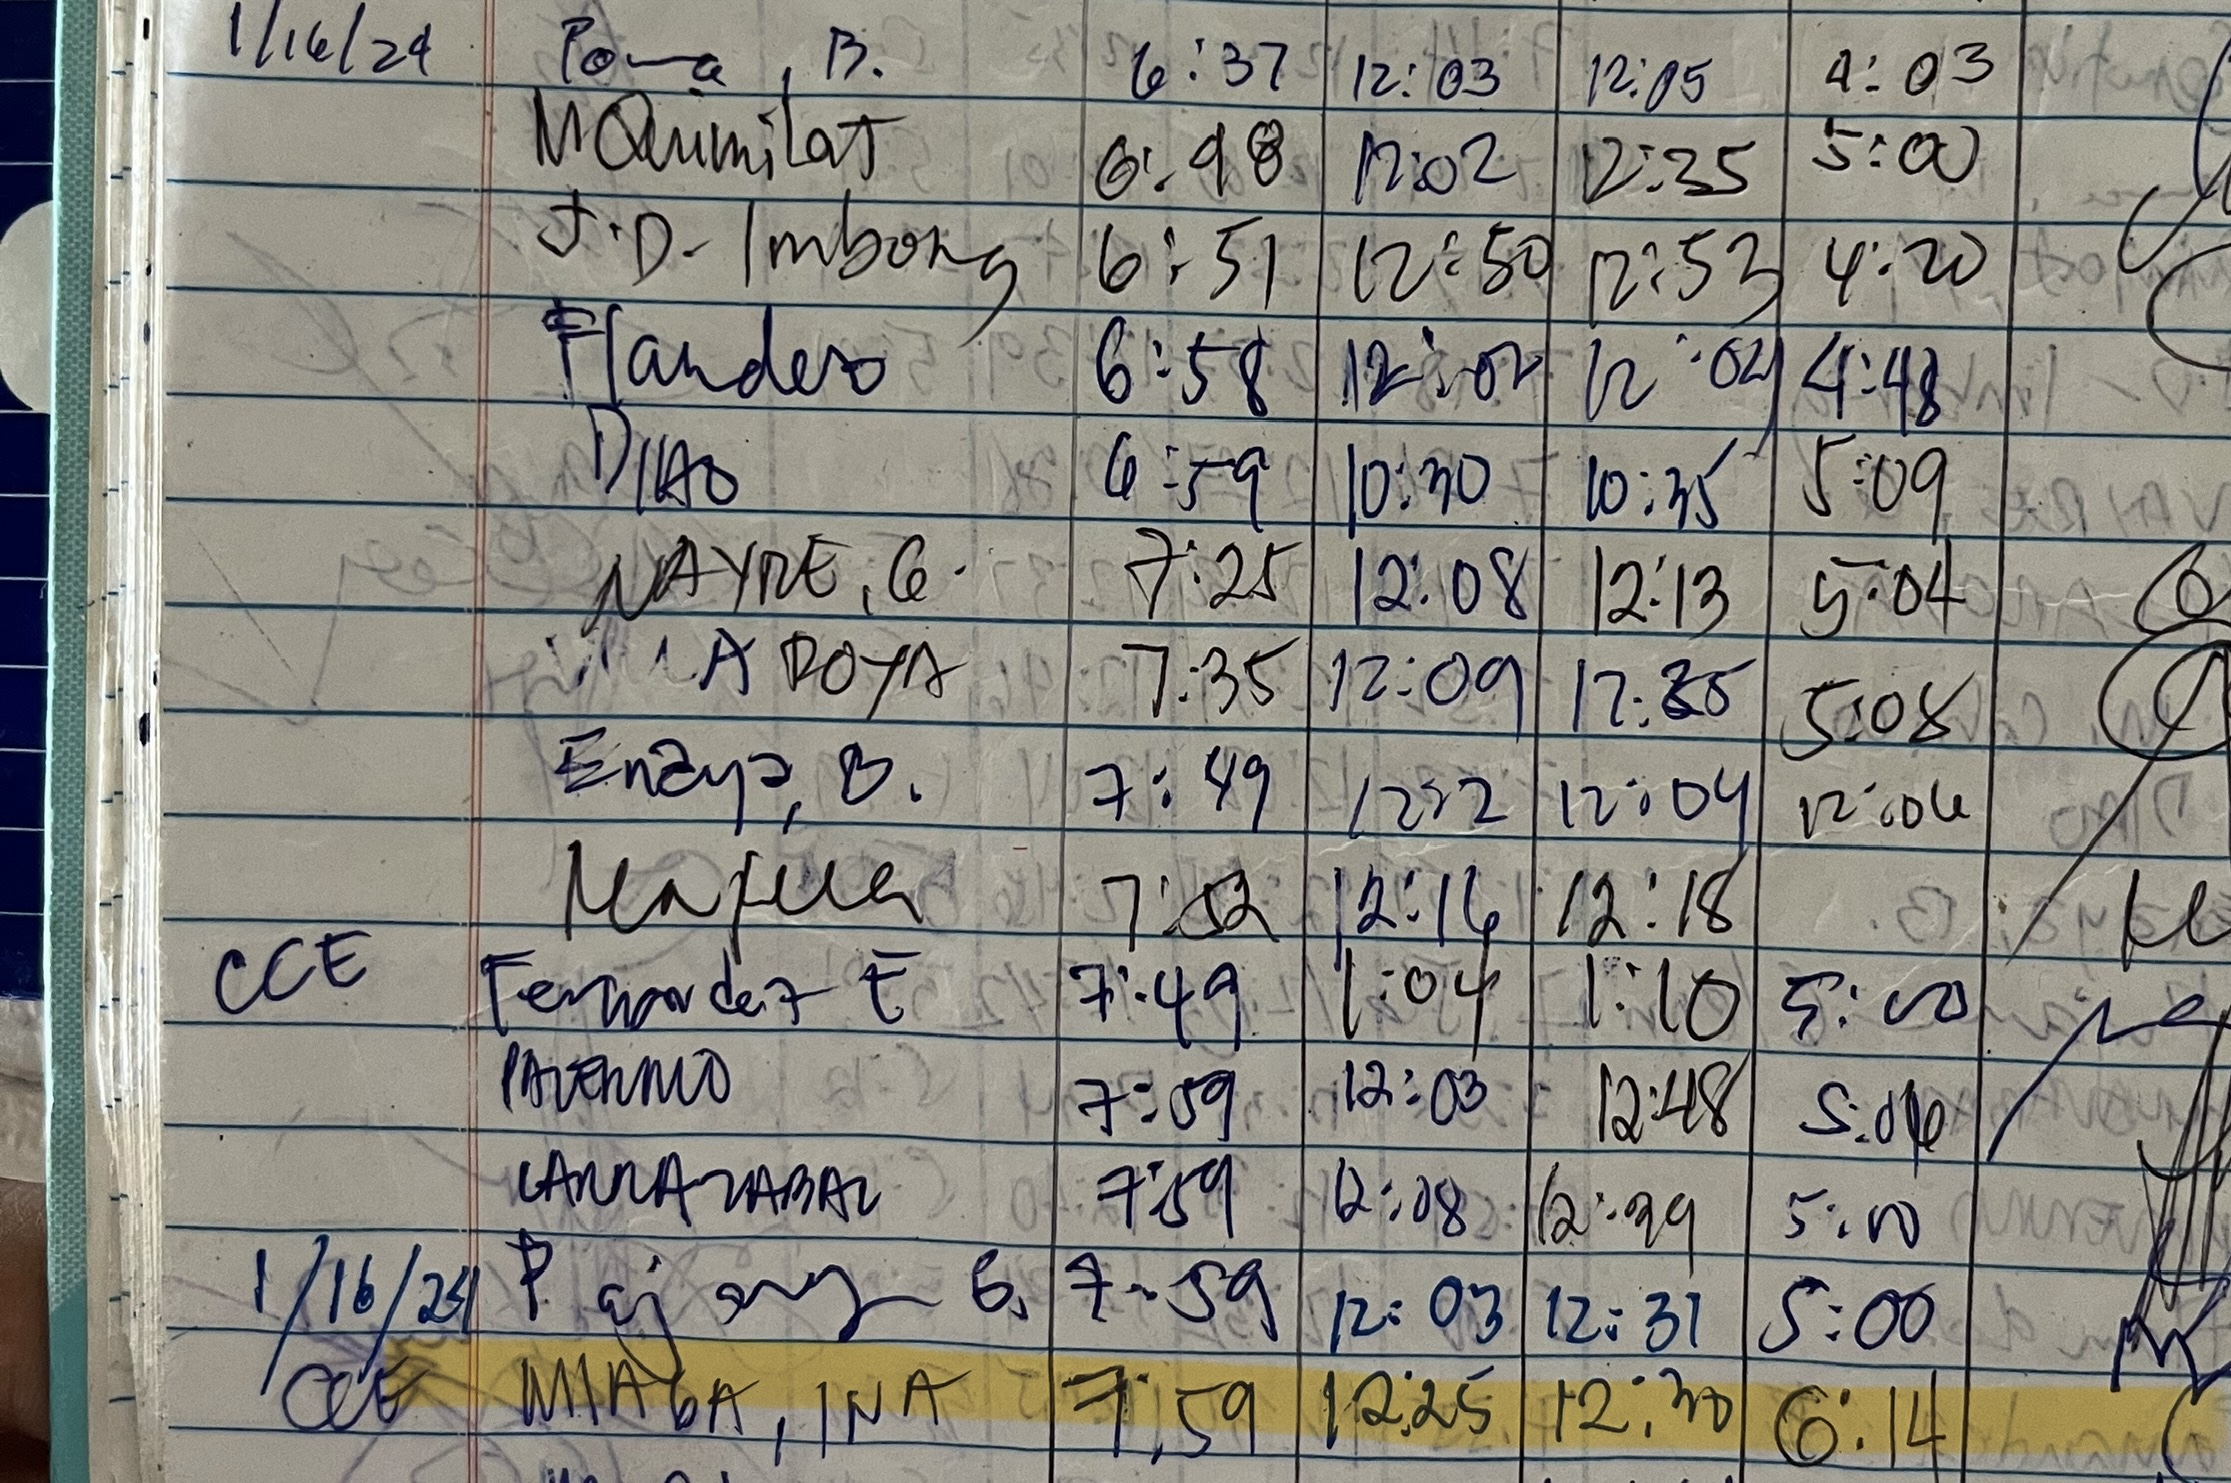 1/16/24 B. 6:37 12:03 12:05 4:03
MQuimilat 6:48 12:02 12:35 5:00
J.D. Imbong 6:51 12:50 12:53 4:20
Flandero 6:58 12:02 12:04 4:48
DIAO 6:59 10:30 10:35 5:09
NAYRE, G. 7:25 12:08 12:13 5:04
A ROYA 7:35 12:09 12:35 5:08
Enaya, B. 7:49 12:2 12:04 12:06
7:52 12:16 12:18
CCE Fernandez E 7:49 1:04 1:10 5:00
PATERNO 7:59 12:03 12:48 5:06
LARRAZABAL 7:59 12:08 12:39 5:00
1/16/24 7:59 12:03 12:31 5:00
CCE MIAGA, INA 7:59 12:25 12:30 6:14